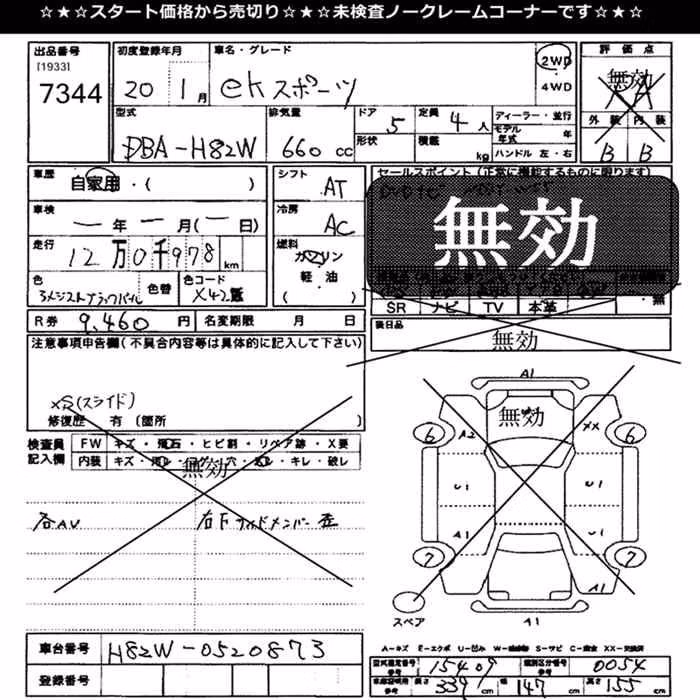 ☆★☆★スタート価格から売切り☆★☆★未検査ノークレームコーナーです☆★☆
出品番号
[1933]
7344
初度登録年月
20 1月
車名・グレード
ekスポーツ
2WD
4WD
評価点
無効
外装 内装
B B
型式
DBA-H82W
排気量
660 cc
ドア 5
形状
定員 4人
積載 kg
ディーラー・並行
モデル年式 年
ハンドル 左・右
車歴
自家用・( )
車検
一年一月(一日)
走行
12万0千978km
色
色替
色コード
X42
シフト
AT
冷房
AC
燃料
ガソリン
軽油
( )
セールスポイント(正常に機能するものに限ります)
無効
SR ナビ TV 本革 無
R券 9,460円
名変期限 月 日
後日品
無効
注意事項申告欄(不具合内容等は具体的に記入して下さい)
XS(スライド)
修復歴 有 (箇所 )
検査員記入欄
FW キズ・飛石・ヒビ割・リペア跡・X要
内装 キズ・汚レ・コゲ・穴・丸レ・キレ・破レ
無効
各AU
右下サイドメンバー歪
A1
無効
6 A2 XX 6
U1 U1
A1 U1
7 7
A1
スペア
A1
車台番号
H82W-0520873
登録番号
A-キズ E-エクボ U-凹み W-補修跡 S-サビ C-腐食 XX-交換済
型式指定番号 参考 15409
類別区分番号 参考 0054
車検証明用 参考 長さ 339cm 幅 147cm 高さ 155cm